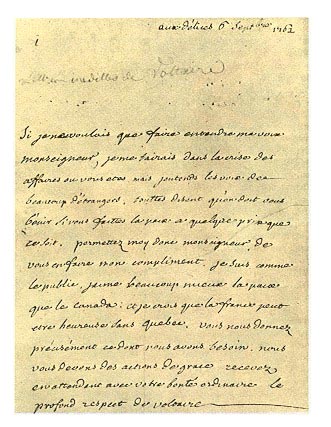 aux délices 6 septbre 1762
1
Lettres inedittes de Voltaire
Si je ne voulois que faire entendre ma voix
monseigneur, je me tairais dans la crise des
affaires ou vous etes mais j'entends les voix de
beaucoup d'etrangers, touttes disent qu'on doit vous
benir si vous faittes la paix a quelque prix que
ce soit. permettez moy donc monseigneur de
vous en faire mon compliment. je suis comme
le public, j'aime beaucoup mieux la paix
que le canada: et je crois que la france peut
etre heureuse sans quebec. vous nous donnez
précisément ce dont nous avons besoin. nous
vous devons des actions de grace. recevez
en attendant avec votre bonté ordinaire le
profond respect de voltaire